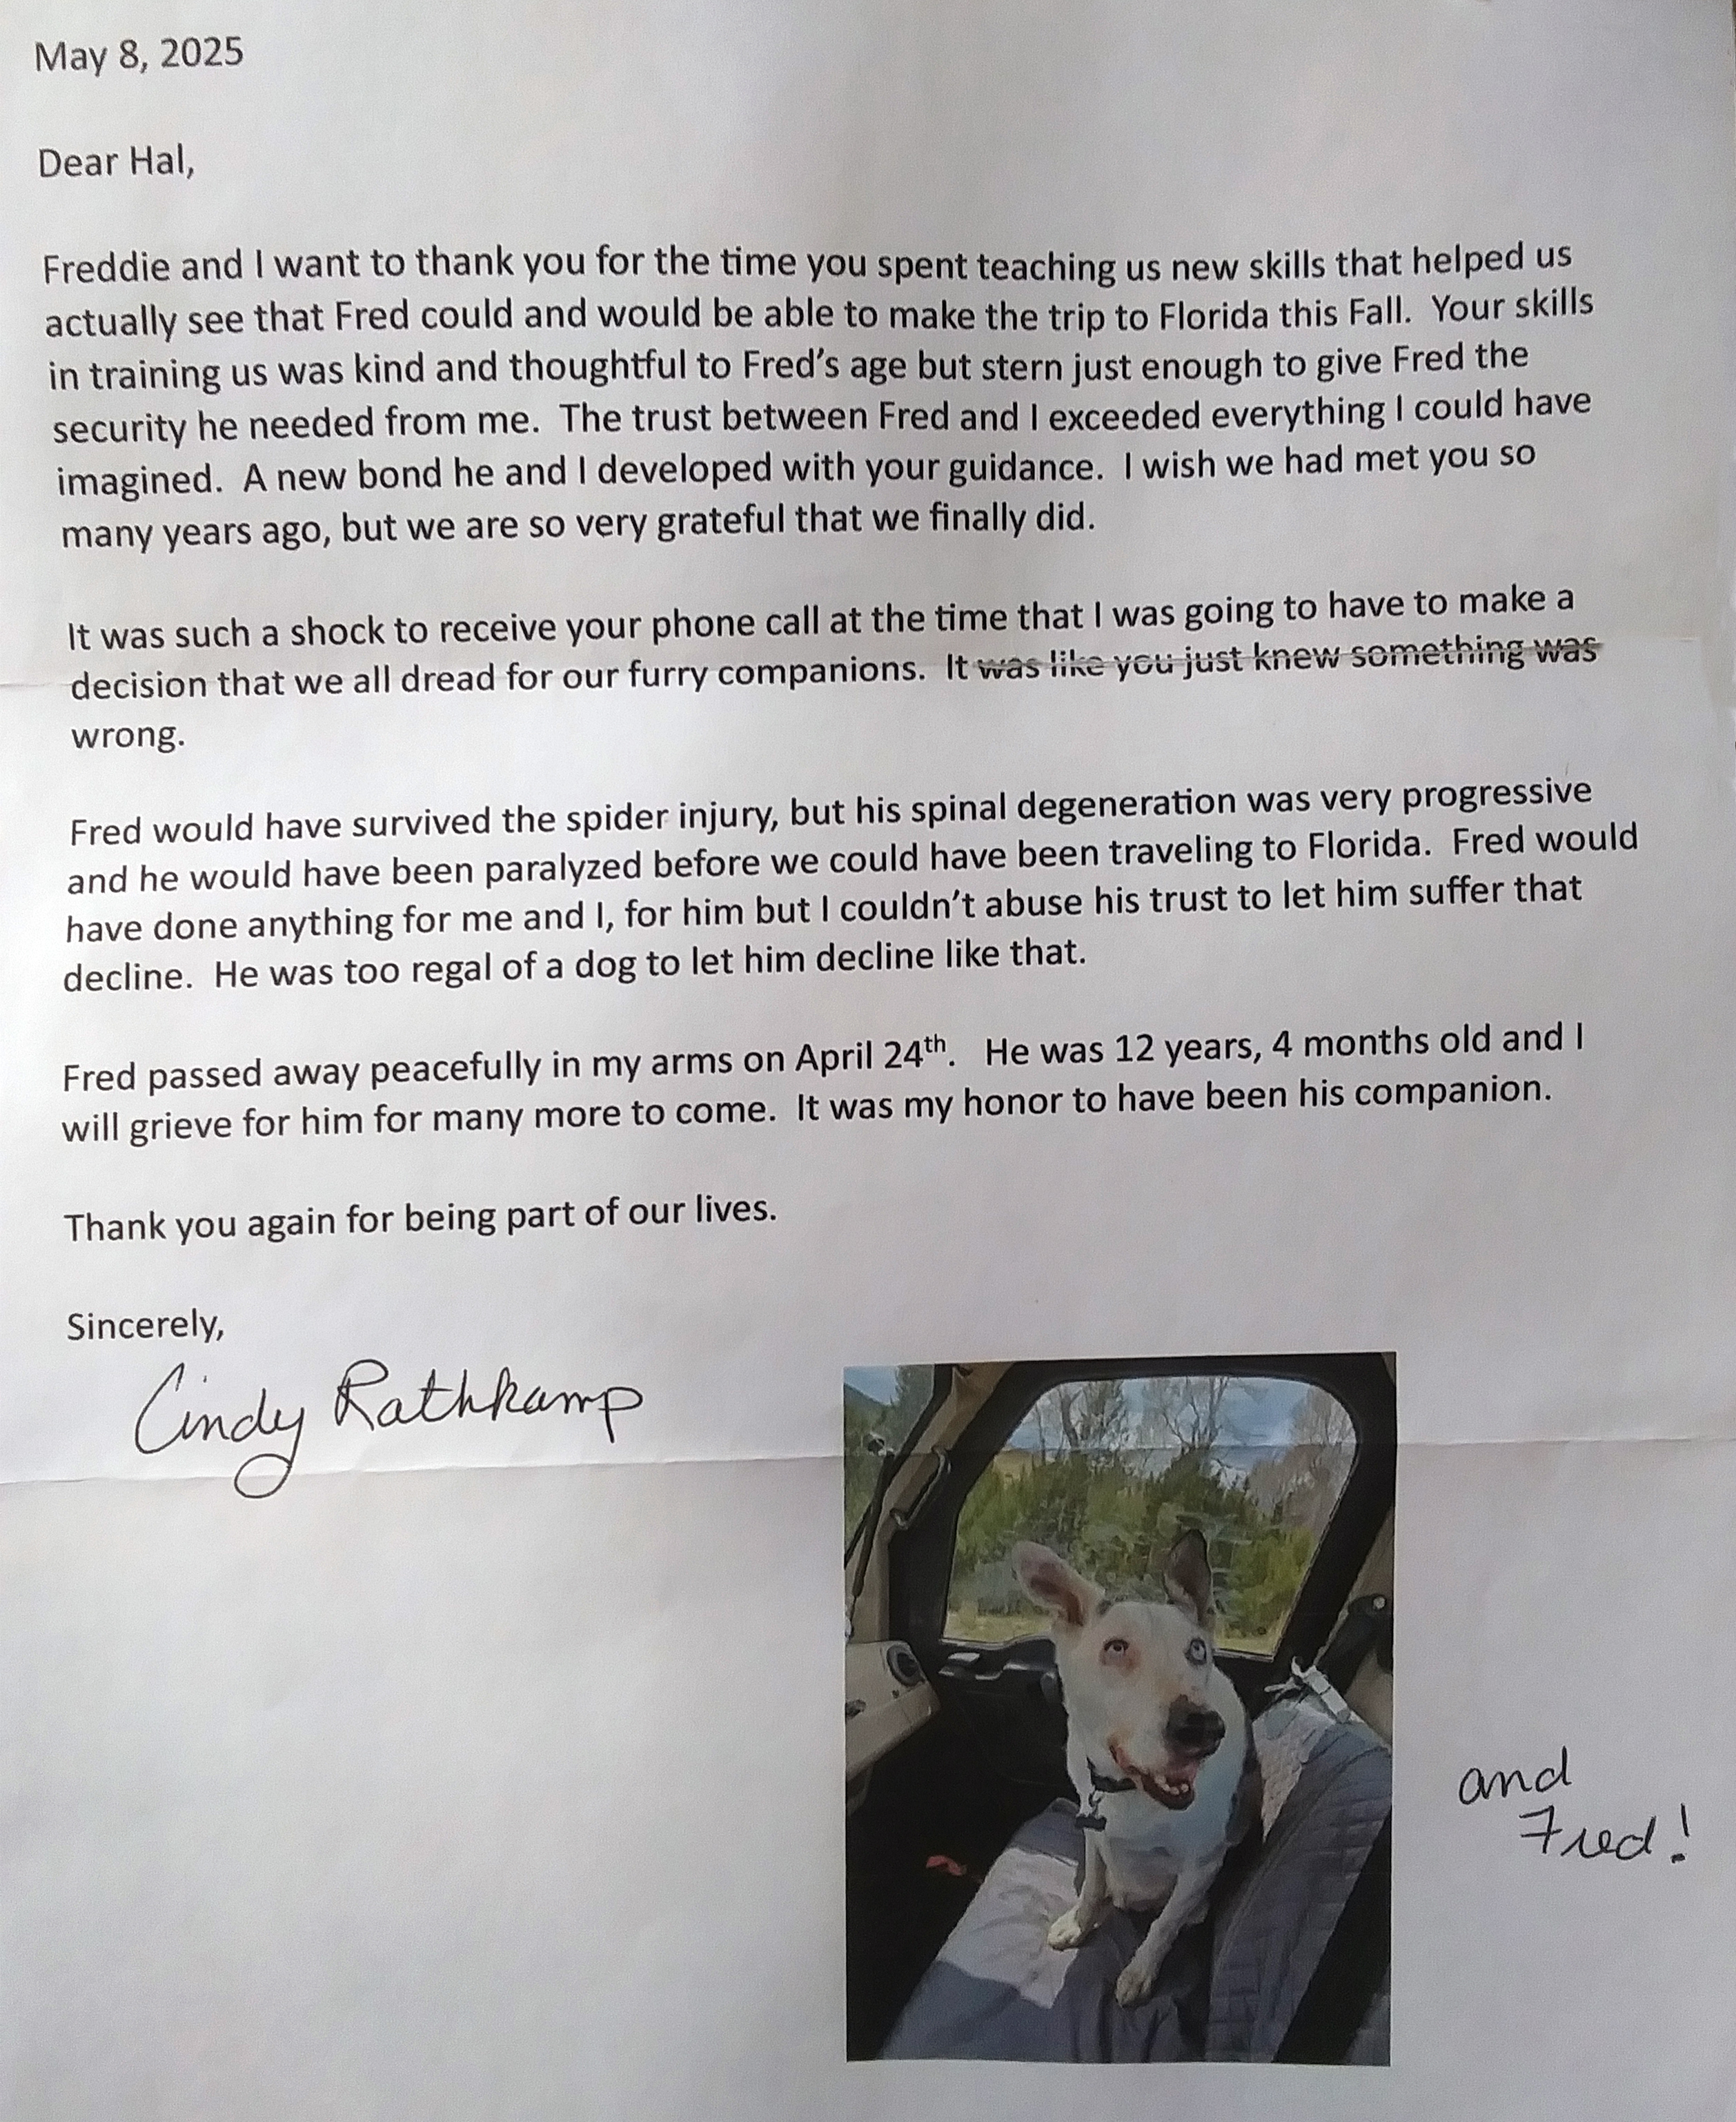 May 8, 2025
Dear Hal,
Freddie and I want to thank you for the time you spent teaching us new skills that helped us
actually see that Fred could and would be able to make the trip to Florida this Fall.  Your skills
in training us was kind and thoughtful to Fred’s age but stern just enough to give Fred the
security he needed from me.  The trust between Fred and I exceeded everything I could have
imagined.  A new bond he and I developed with your guidance.  I wish we had met you so
many years ago, but we are so very grateful that we finally did.
It was such a shock to receive your phone call at the time that I was going to have to make a
decision that we all dread for our furry companions.  It was like you just knew something was
wrong.
Fred would have survived the spider injury, but his spinal degeneration was very progressive
and he would have been paralyzed before we could have been traveling to Florida.  Fred would
have done anything for me and I, for him but I couldn’t abuse his trust to let him suffer that
decline.  He was too regal of a dog to let him decline like that.
Fred passed away peacefully in my arms on April 24th.  He was 12 years, 4 months old and I
will grieve for him for many more to come.  It was my honor to have been his companion.
Thank you again for being part of our lives.
Sincerely,
Cindy Rathkamp
and
Fred!